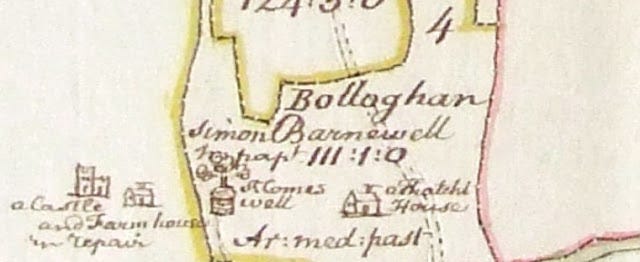 124:3:0
4
Bolloghan
Simon Barnewell
Irᵉ papᵗ 111:1:0
St Comes
well
a thatcht
House
a Castle
and Farm house
in repair
Ar:med:past